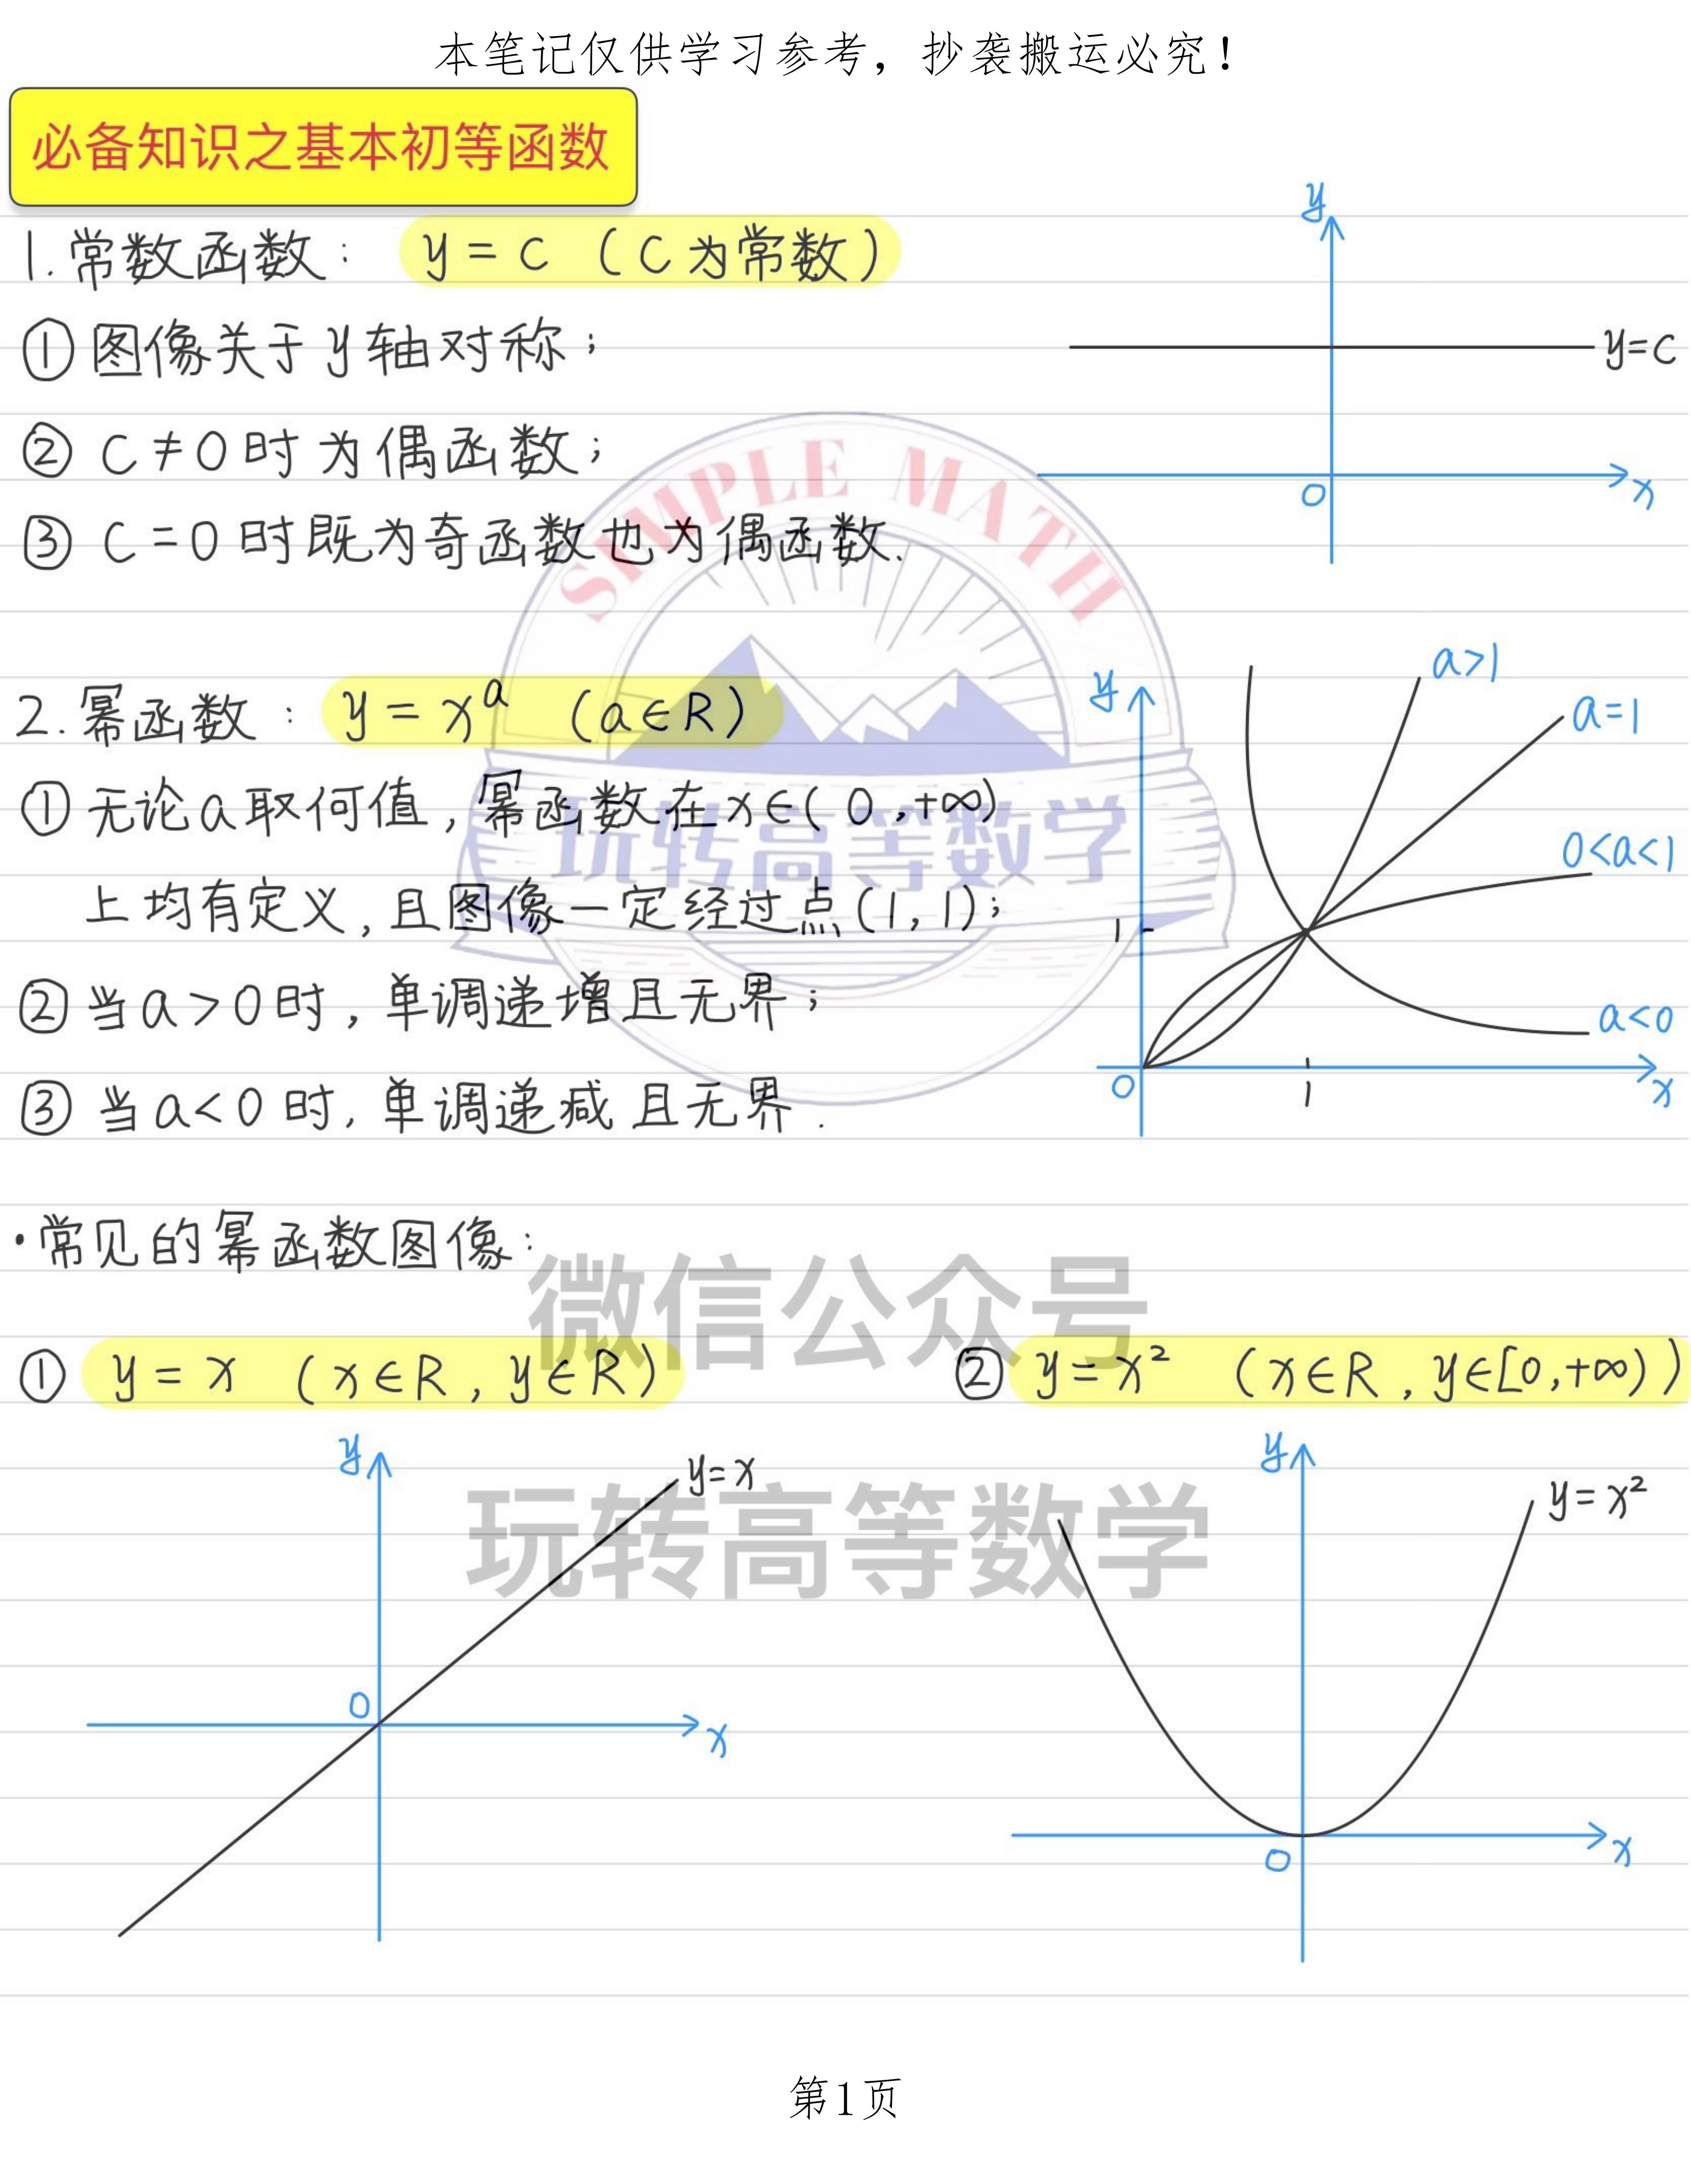 本笔记仅供学习参考，抄袭搬运必究！
必备知识之基本初等函数
1. 常数函数： y = C （C为常数）
① 图像关于y轴对称；
② C≠0时为偶函数；
③ C=0时既为奇函数也为偶函数.
y
y=C
0
x
SIMPLE MATH
玩转高等数学
2. 幂函数： y = xᵃ （a∈R）
① 无论a取何值，幂函数在x∈(0,+∞)
上均有定义，且图像一定经过点(1,1)；
② 当a>0时，单调递增且无界；
③ 当a<0时，单调递减且无界.
y
a>1
a=1
0<a<1
1
a<0
0
1
x
·常见的幂函数图像：
微信公众号
玩转高等数学
① y = x （x∈R，y∈R）
y
y=x
0
x
② y=x² （x∈R，y∈[0,+∞)）
y
y=x²
0
x
第1页